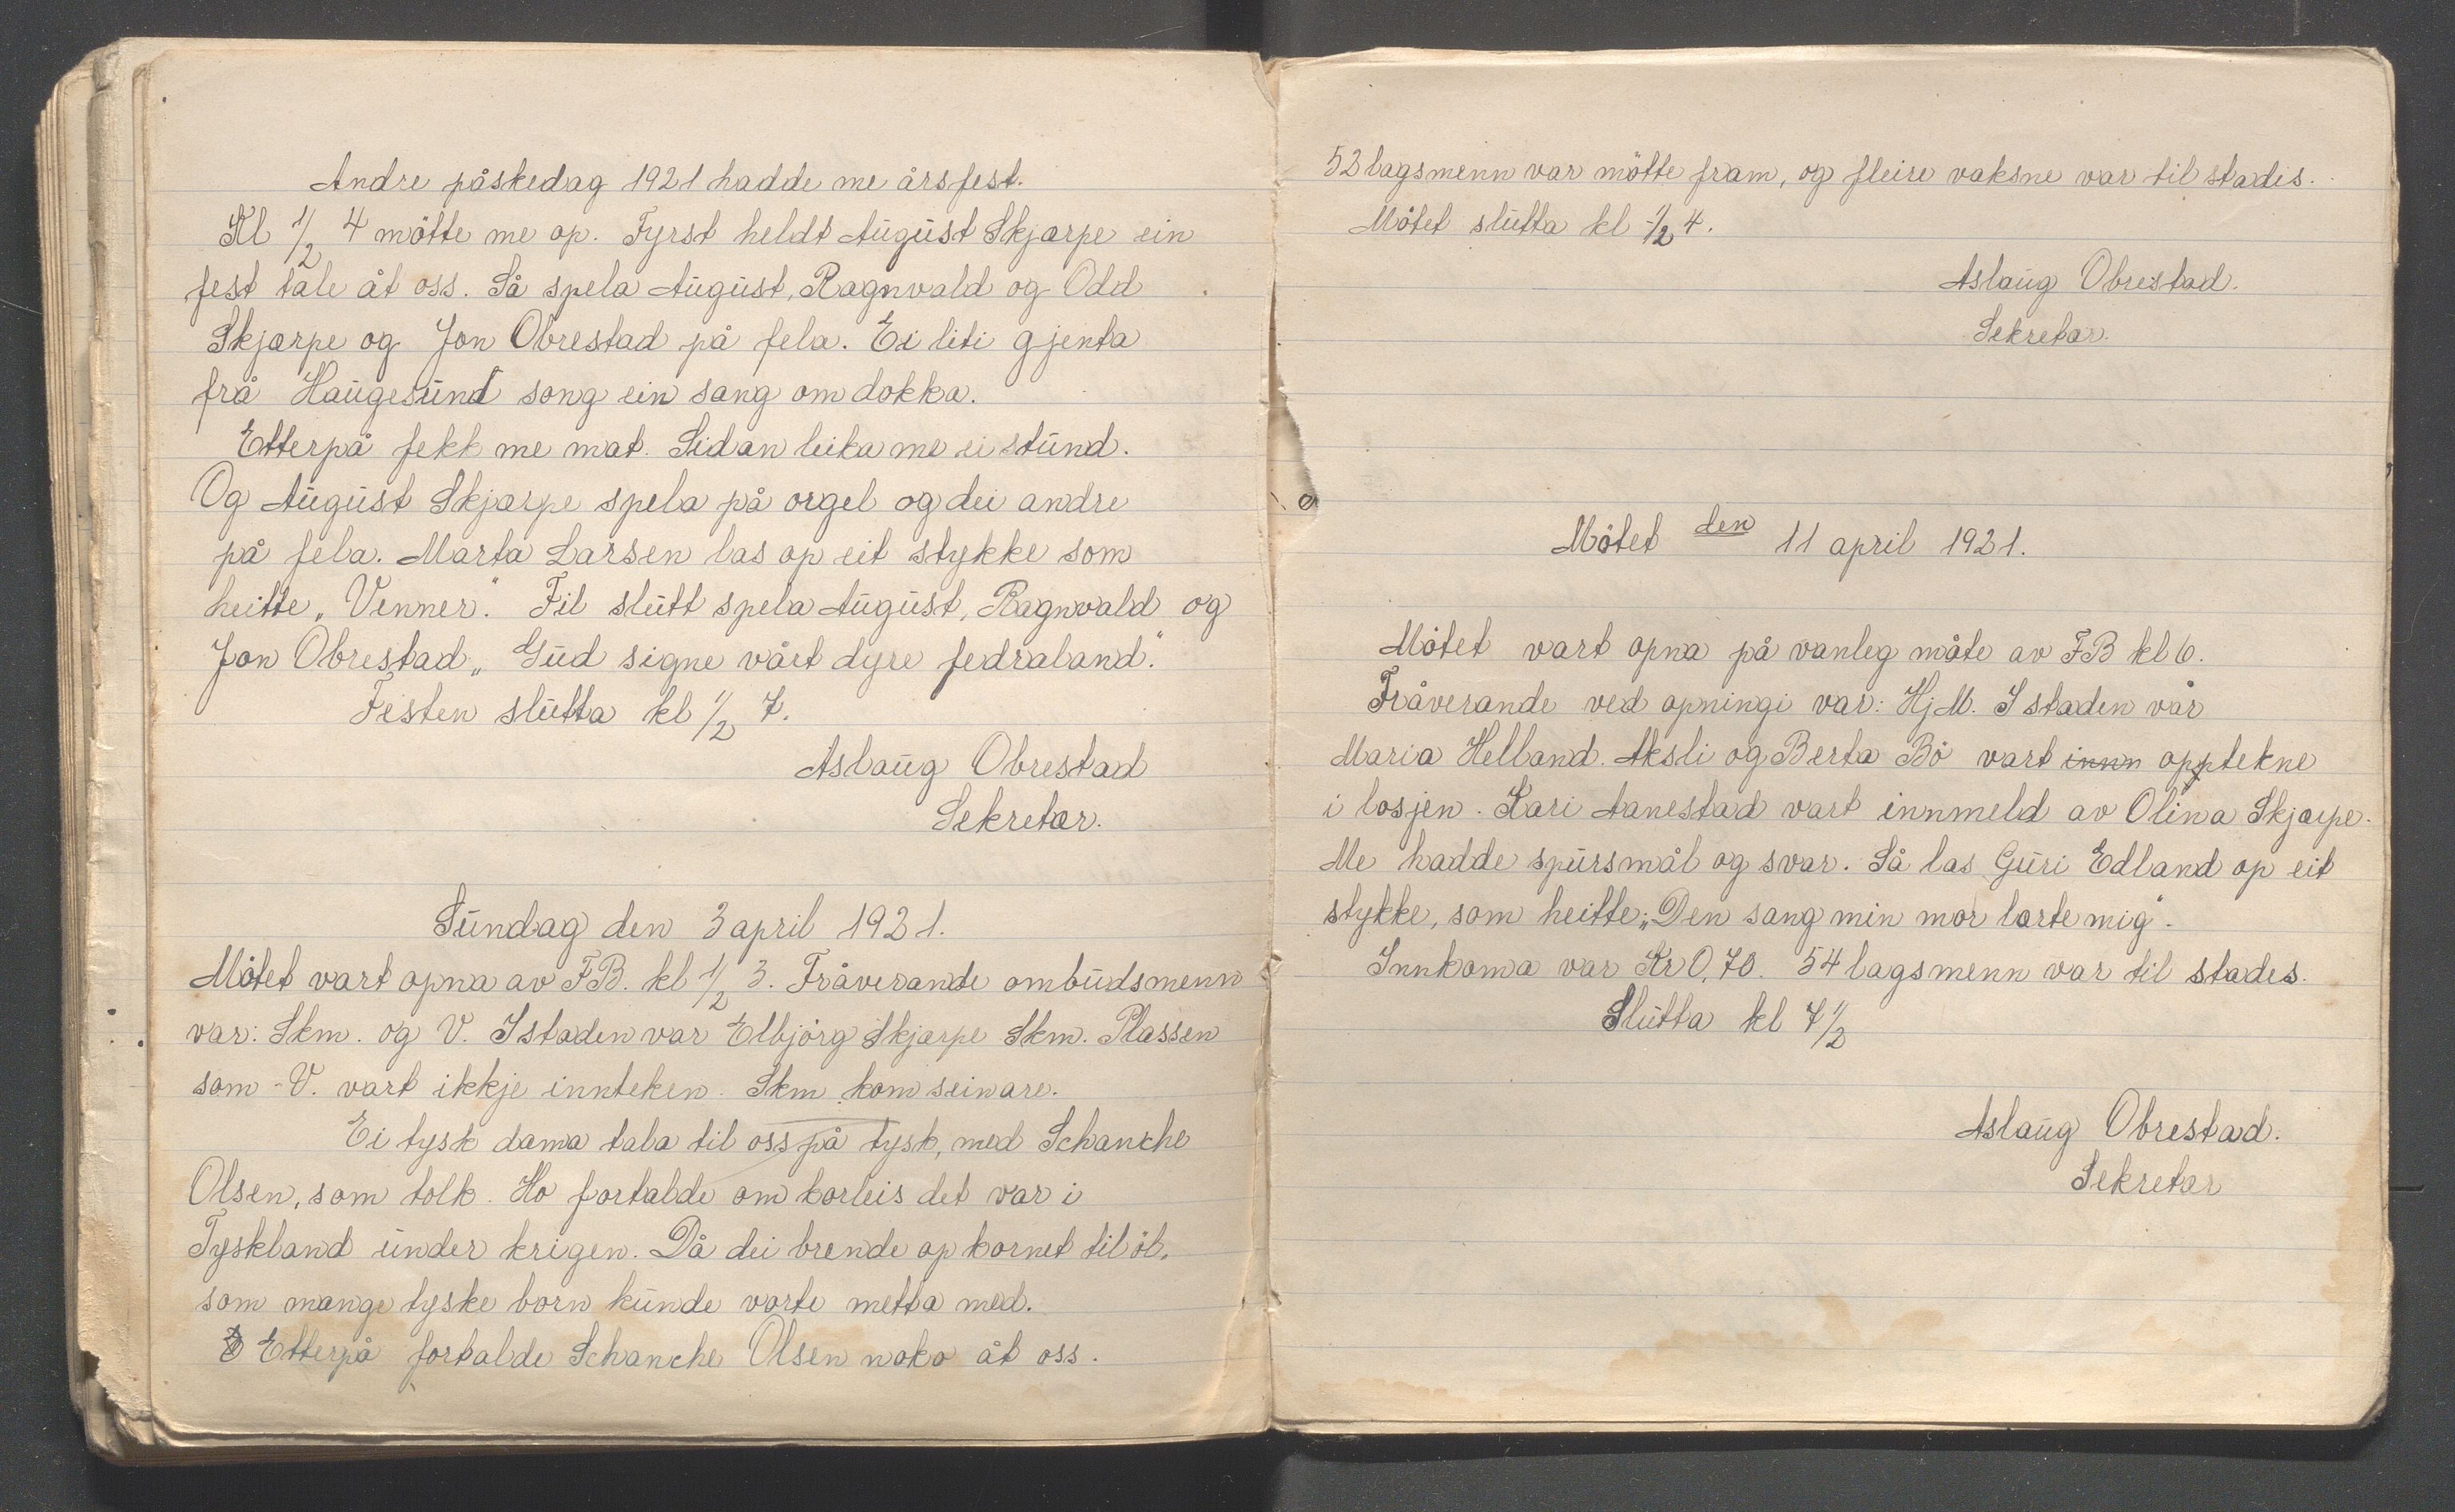 Andre påskedag 1921 hadde me årsfest.
Kl 1/2 4 mötte me op. Fyrst heldt August Skjærpe ein
fest tale åt oss. Så spela August, Ragnvald og Odd
Skjærpe og Jon Obrestad på fela. Ei liti gjenta
frå Haugesund song ein sang om dokka.
Etterpå fekk me mat. Sidan leika me ei stund.
Og August Skjærpe spela på orgel og dei andre
på fela. Marta Larsen las op eit stykke som
heitte „Venner." Til slutt spela August, Ragnvald og
Jon Obrestad „Gud signe vårt dyre fedraland."
Festen slutta kl 1/2 7.
Aslaug Obrestad
Sekretær.
Sundag den 3 april 1921.
Mötet vart opna av F.B. kl 1/2 3. Fråverande ombudsmenn
var: Skm. og V. I staden var Elbjörg Skjærpe Skm. Plassen
som V. vart ikkje innteken. Skm kom seinare.
Ei tysk dama tala til oss på tysk, med Schanche
Olsen, som tolk. Ho fortalde om korleis det var i
Tyskland under krigen. Då dei brende op kornet til öl,
som mange tyske born kunde vorte metta med.
Etterpå fortalde Schanche Olsen noko åt oss.
52 lagsmenn var mötte fram, og fleire vaksne var til stades.
Mötet slutta kl 1/2 4.
Aslaug Obrestad.
Sekretær.
Mötet den 11 april 1921.
Mötet vart opna på vanleg måte av FB kl 6.
Fråverande ved opningi var: Hj M. I staden var
Maria Helland. Aksli og Berta Bö vart innn opptekne
i losjen. Kari Aanestad vart innmeld av Olina Skjærpe.
Me hadde spursmål og svar. Så las Guri Edland op eit
stykke, som heitte: „Den sang min mor lærte mig".
Innkoma var Kr 0,70. 54 lagsmenn var til stades.
Slutta kl 7 1/2
Aslaug Obrestad.
Sekretær